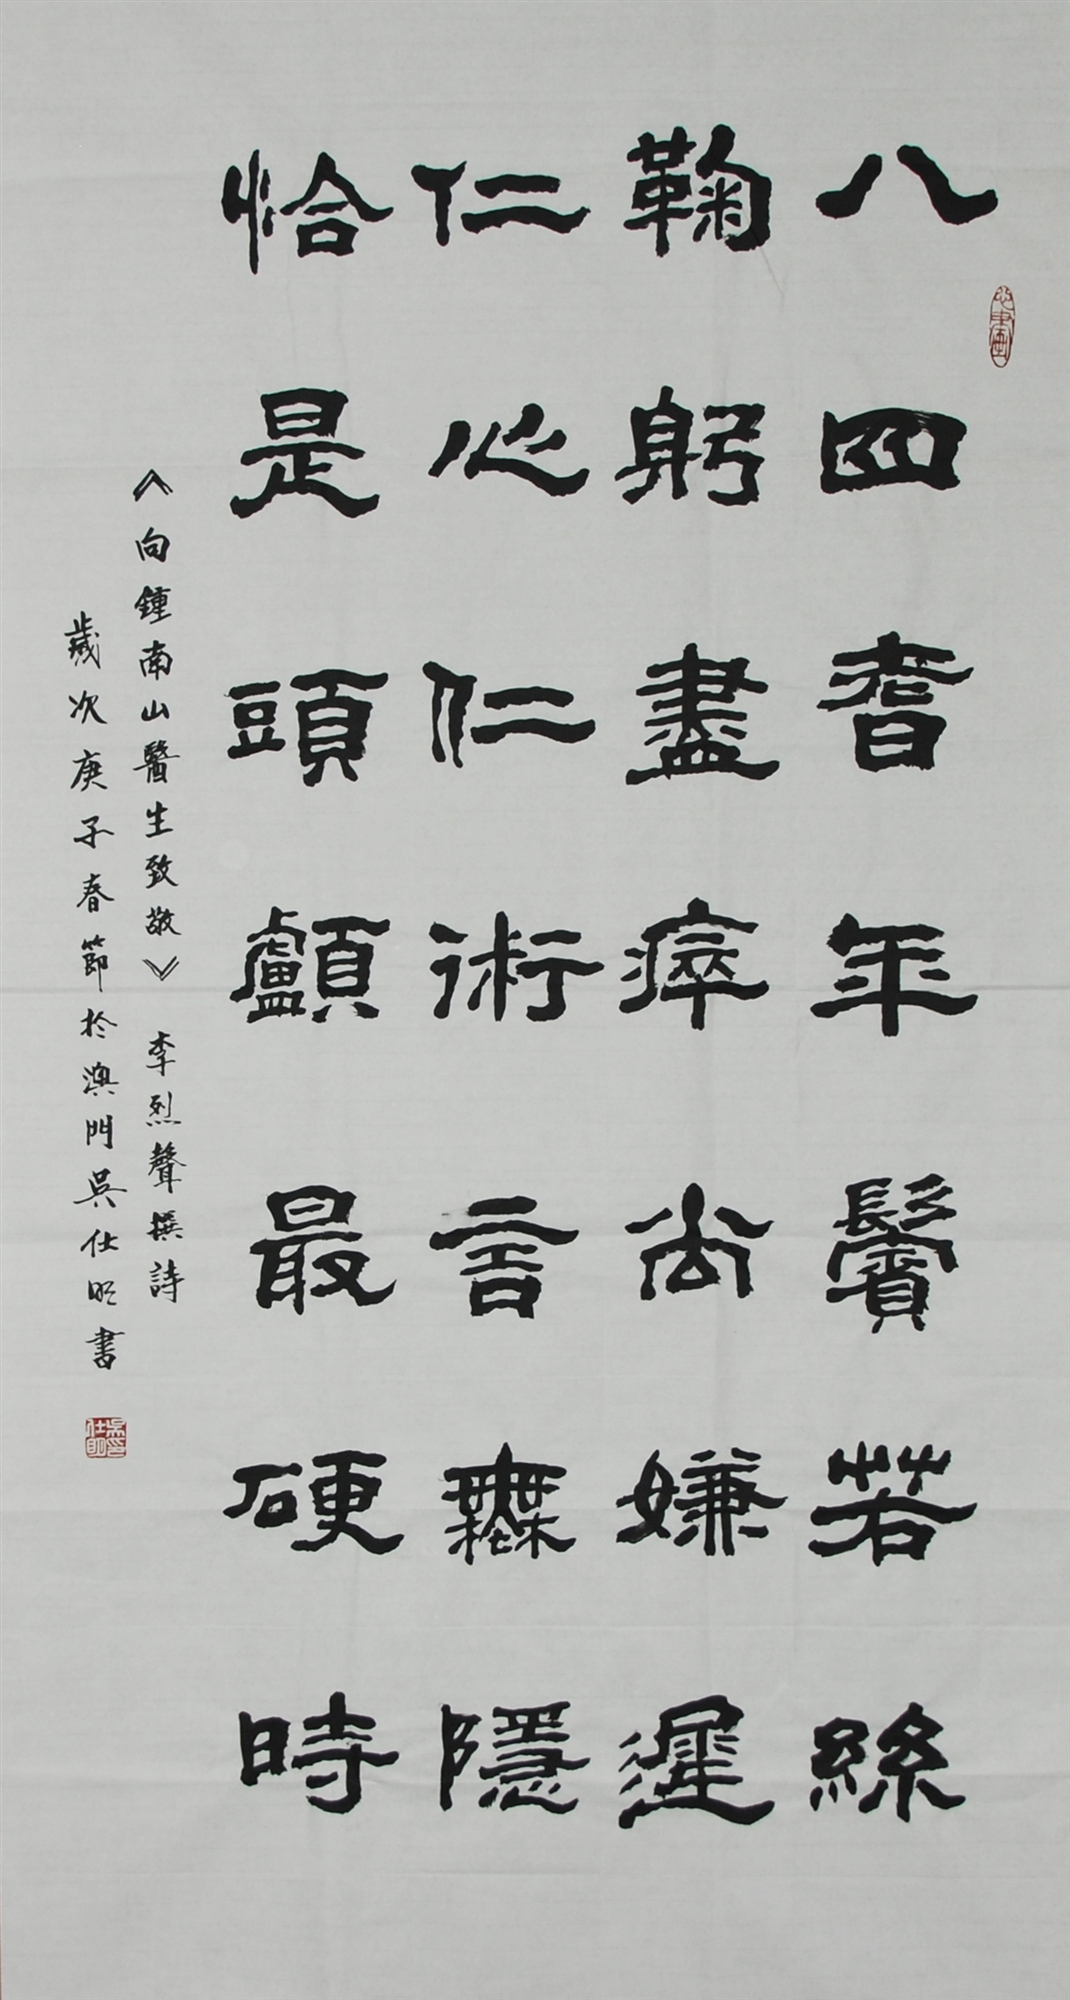 八四耆年鬢若絲
鞠躬盡瘁尚嫌遲
仁心仁術言無隱
恰是頭顱最硬時
《向鍾南山醫生致敬》 李烈聲撰詩
歲次庚子春節於澳門吳仕明書